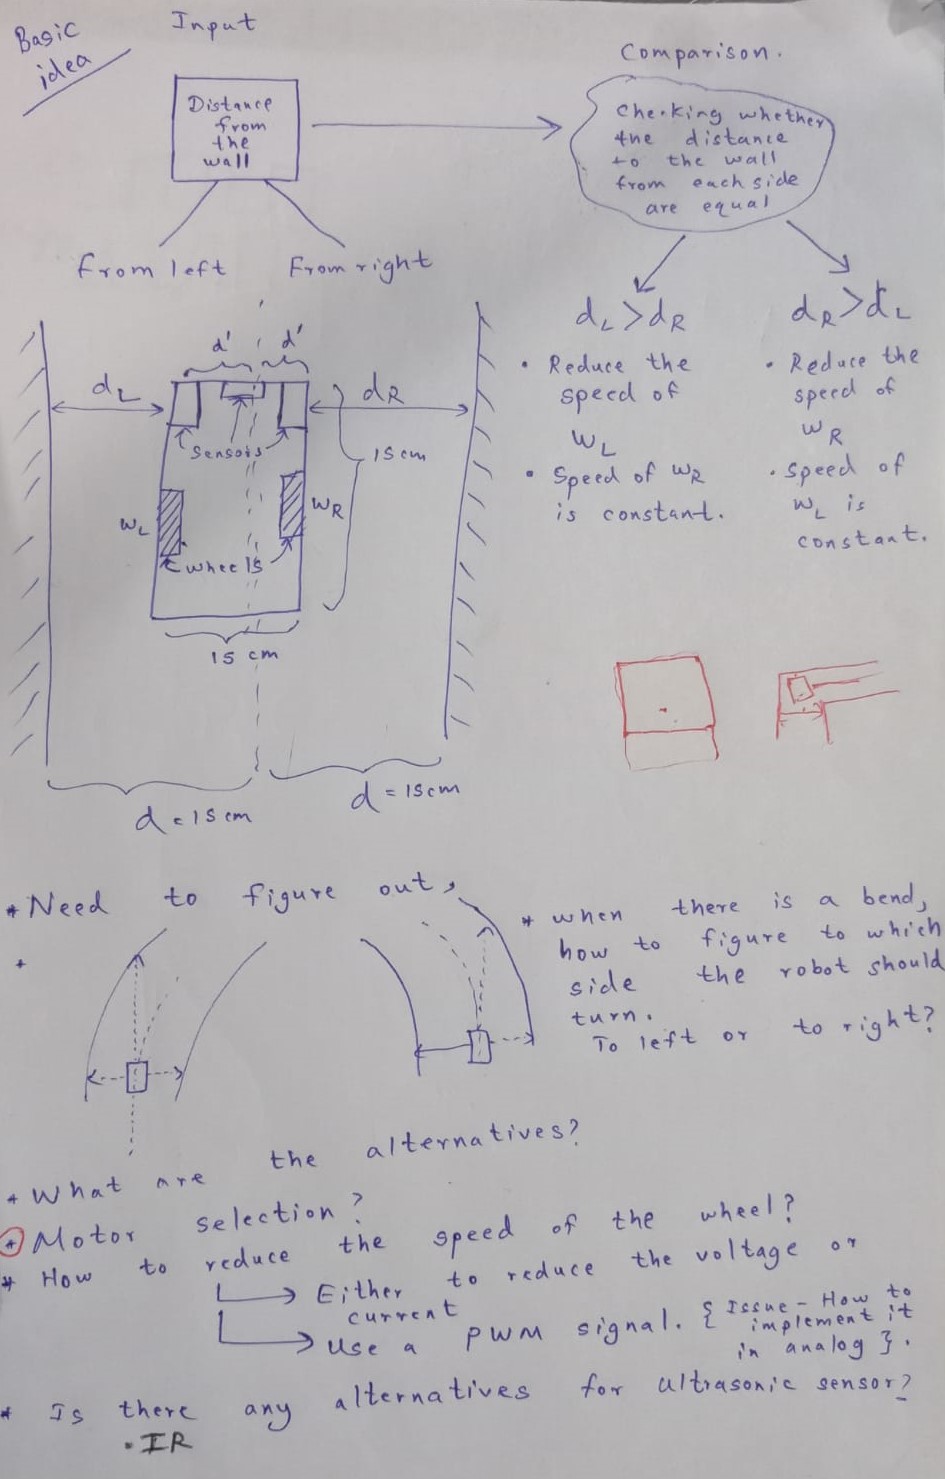 Basic
idea
Input
Distance
from
the
wall
From left
From right
Comparison.
Checking whether
the distance
to the wall
from each side
are equal
dL > dR
• Reduce the
speed of
WL
• Speed of WR
is constant.
dR > dL
• Reduce the
speed of
WR
• Speed of
WL is
constant.
d'
d'
dL
dR
sensors
15 cm
WL
WR
wheels
15 cm
d = 15 cm
d = 15 cm
* Need to figure out,
* when there is a bend,
how to figure to which
side the robot should
turn.
To left or to right?
* What are the alternatives?
* Motor selection?
* How to reduce the speed of the wheel?
Either to reduce the voltage or
current
Use a PWM signal. { Issue - How to
implement it
in analog }.
* Is there any alternatives for ultrasonic sensor?
• IR